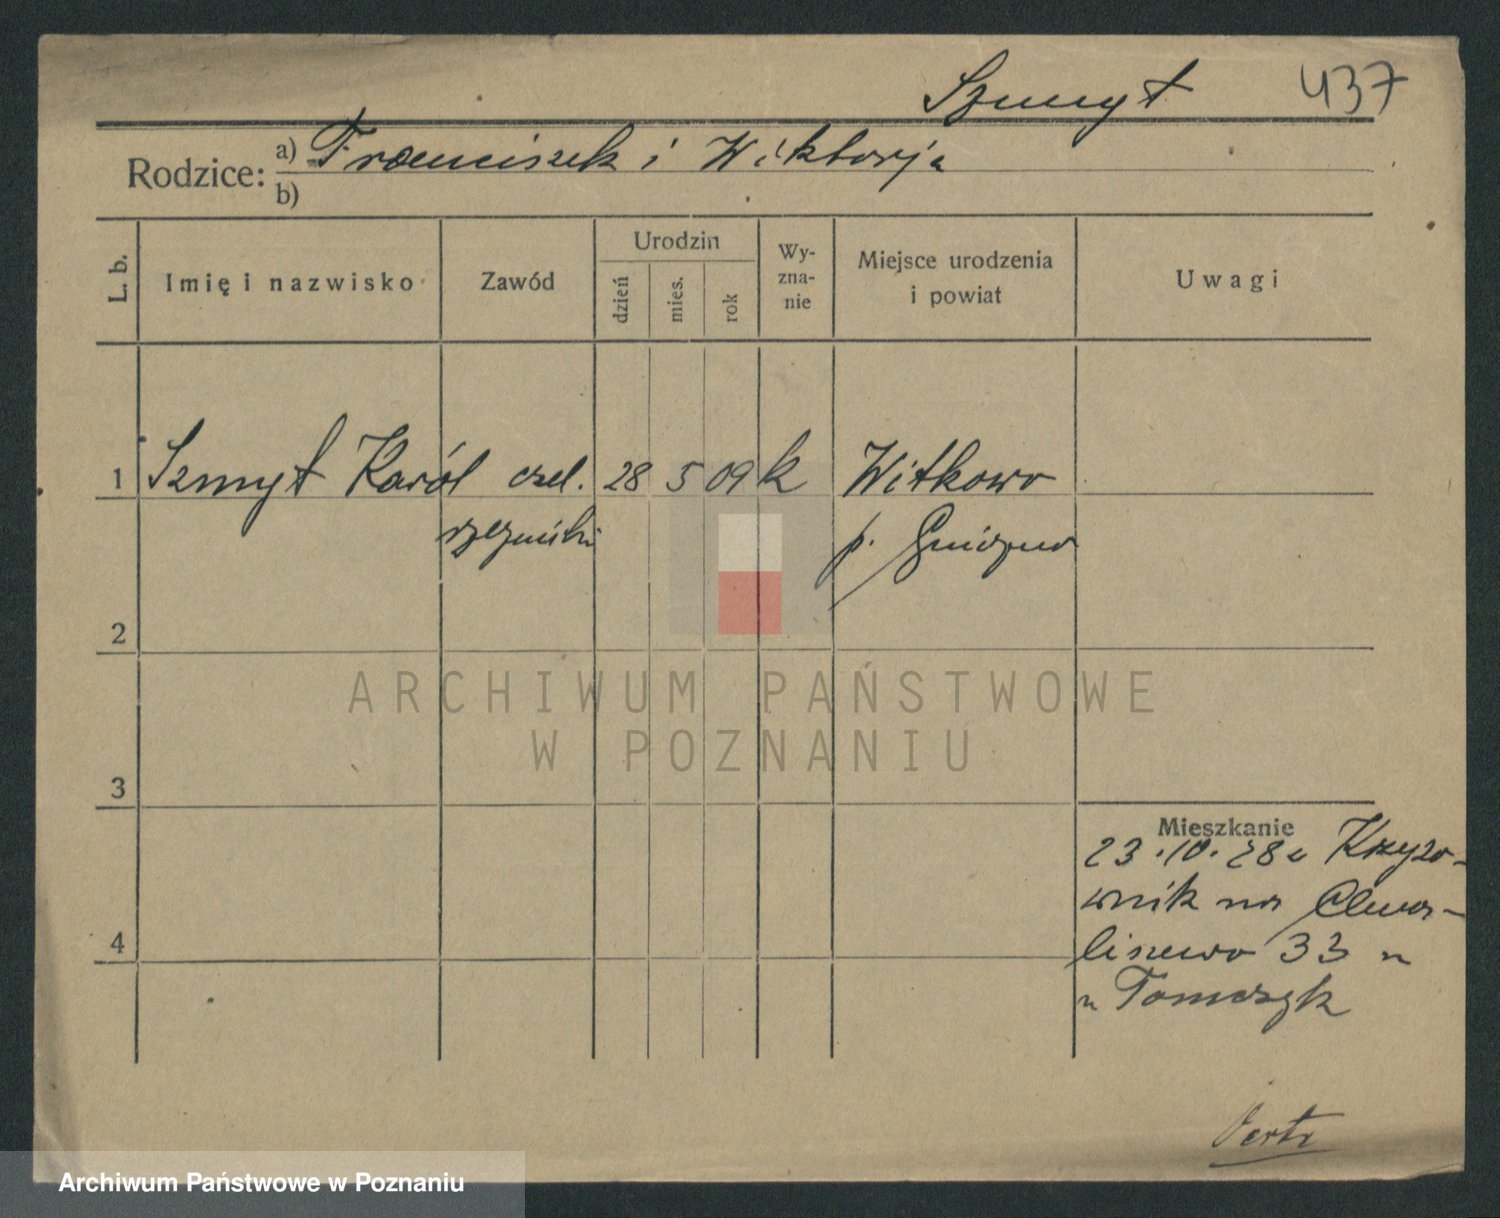 Szmyt 437
Rodzice: a) Franciszek i Wiktorja
b)
L. b.
Imię i nazwisko
Zawód
Urodzin
dzień
mies.
rok
Wy-
zna-
nie
Miejsce urodzenia
i powiat
Uwagi
1 Szmyt Karól czel. 28 5 09 k Witkowo
rzeźnicki p. Gniezno
2
3
Mieszkanie
23.10.28 Krzyżo-
wnik na Chwa-
4
liszewo 33
u Tomczyk
Verte
ARCHIWUM PAŃSTWOWE
W POZNANIU
Archiwum Państwowe w Poznaniu